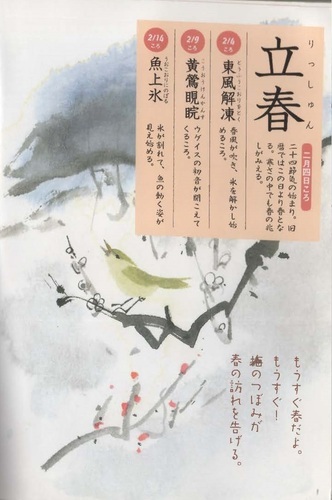 りっしゅん
立春
二月四日ころ
二十四節気の始まり。旧
暦ではこの日より春とな
る。寒さの中でも春の兆
しがみえる。
2/4ころ
とうふうこおりをとく
東風解凍
春風が吹き、氷を解かし始
めるころ。
2/9ころ
こうおうけんかんす
黄鶯睍睆
ウグイスの初音が聞こえて
くるころ。
2/14ころ
うおこおりにのぼる
魚上氷
氷が割れて、魚の動く姿が
見え始める。
もうすぐ春だよ。
もうすぐ！
梅のつぼみが
春の訪れを告げる。